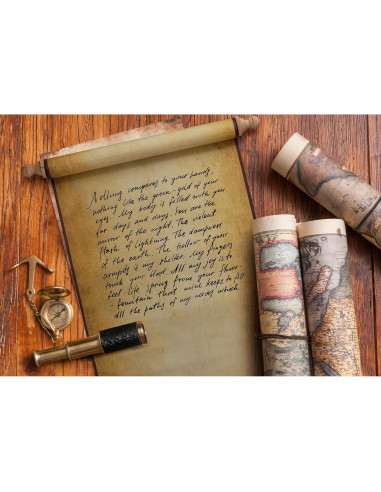 Nothing compares to your hands,
nothing like the green-gold of your
eyes. My body is filled with you
for days and days. you are the
mirror of the night. The violent
flash of lightning. The dampness
of the earth. The hollow of your
armpits is my shelter. My fingers
touch your blood. All my joy is to
feel life spring from your flower-
fountain that mine keeps to fill
all the paths of my nerves which